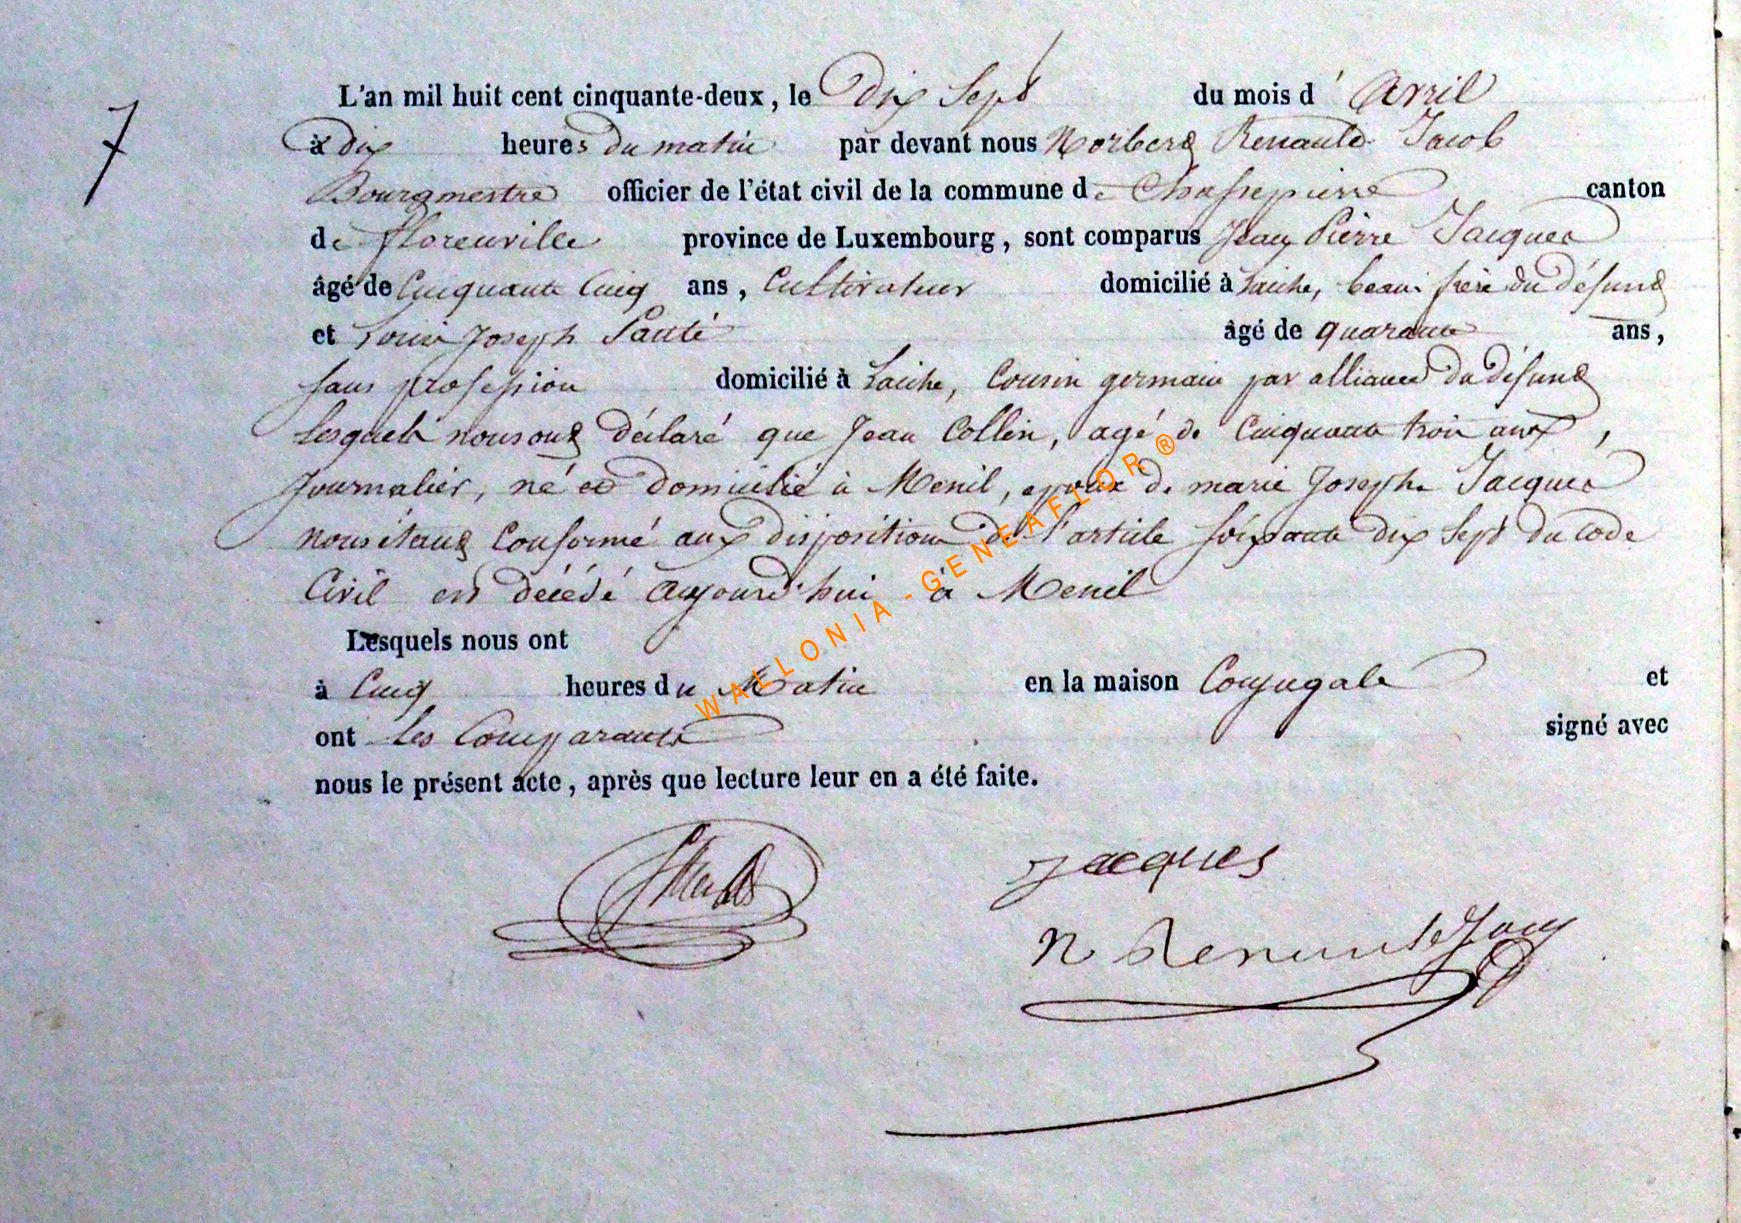 7
L'an mil huit cent cinquante-deux, le Dix Sept du mois d' Avril
à dix heures du matin par devant nous Norbert Renauld Jacob
Bourgmestre officier de l'état civil de la commune de Chassepierre canton
de florenville province de Luxembourg, sont comparus Jean Pierre Jacques
âgé de Cinquante Cinq ans, Cultivateur domicilié à Laiche, beau-frère du défunt
et Louis Joseph Santé âgé de quarante ans,
sans profession domicilié à Laiche, Cousin germain par alliance du défunt
lesquels nous ont déclaré que Jean Collin, agé de Cinquante trois ans,
Journalier, né et domicilié à Menil, epoux de marie Josephe Jacques
nous étant Conformé aux dispositions de l'article soixante dix Sept du Code
Civil est décédé aujourd'hui à Menil
Lesquels nous ont
à Cinq heures du Matin en la maison Conjugale et
ont les Comparants signé avec
nous le présent acte, après que lecture leur en a été faite.
Jacques
N Renauld Jacob
WALLONIA - GENEAFLOR ®